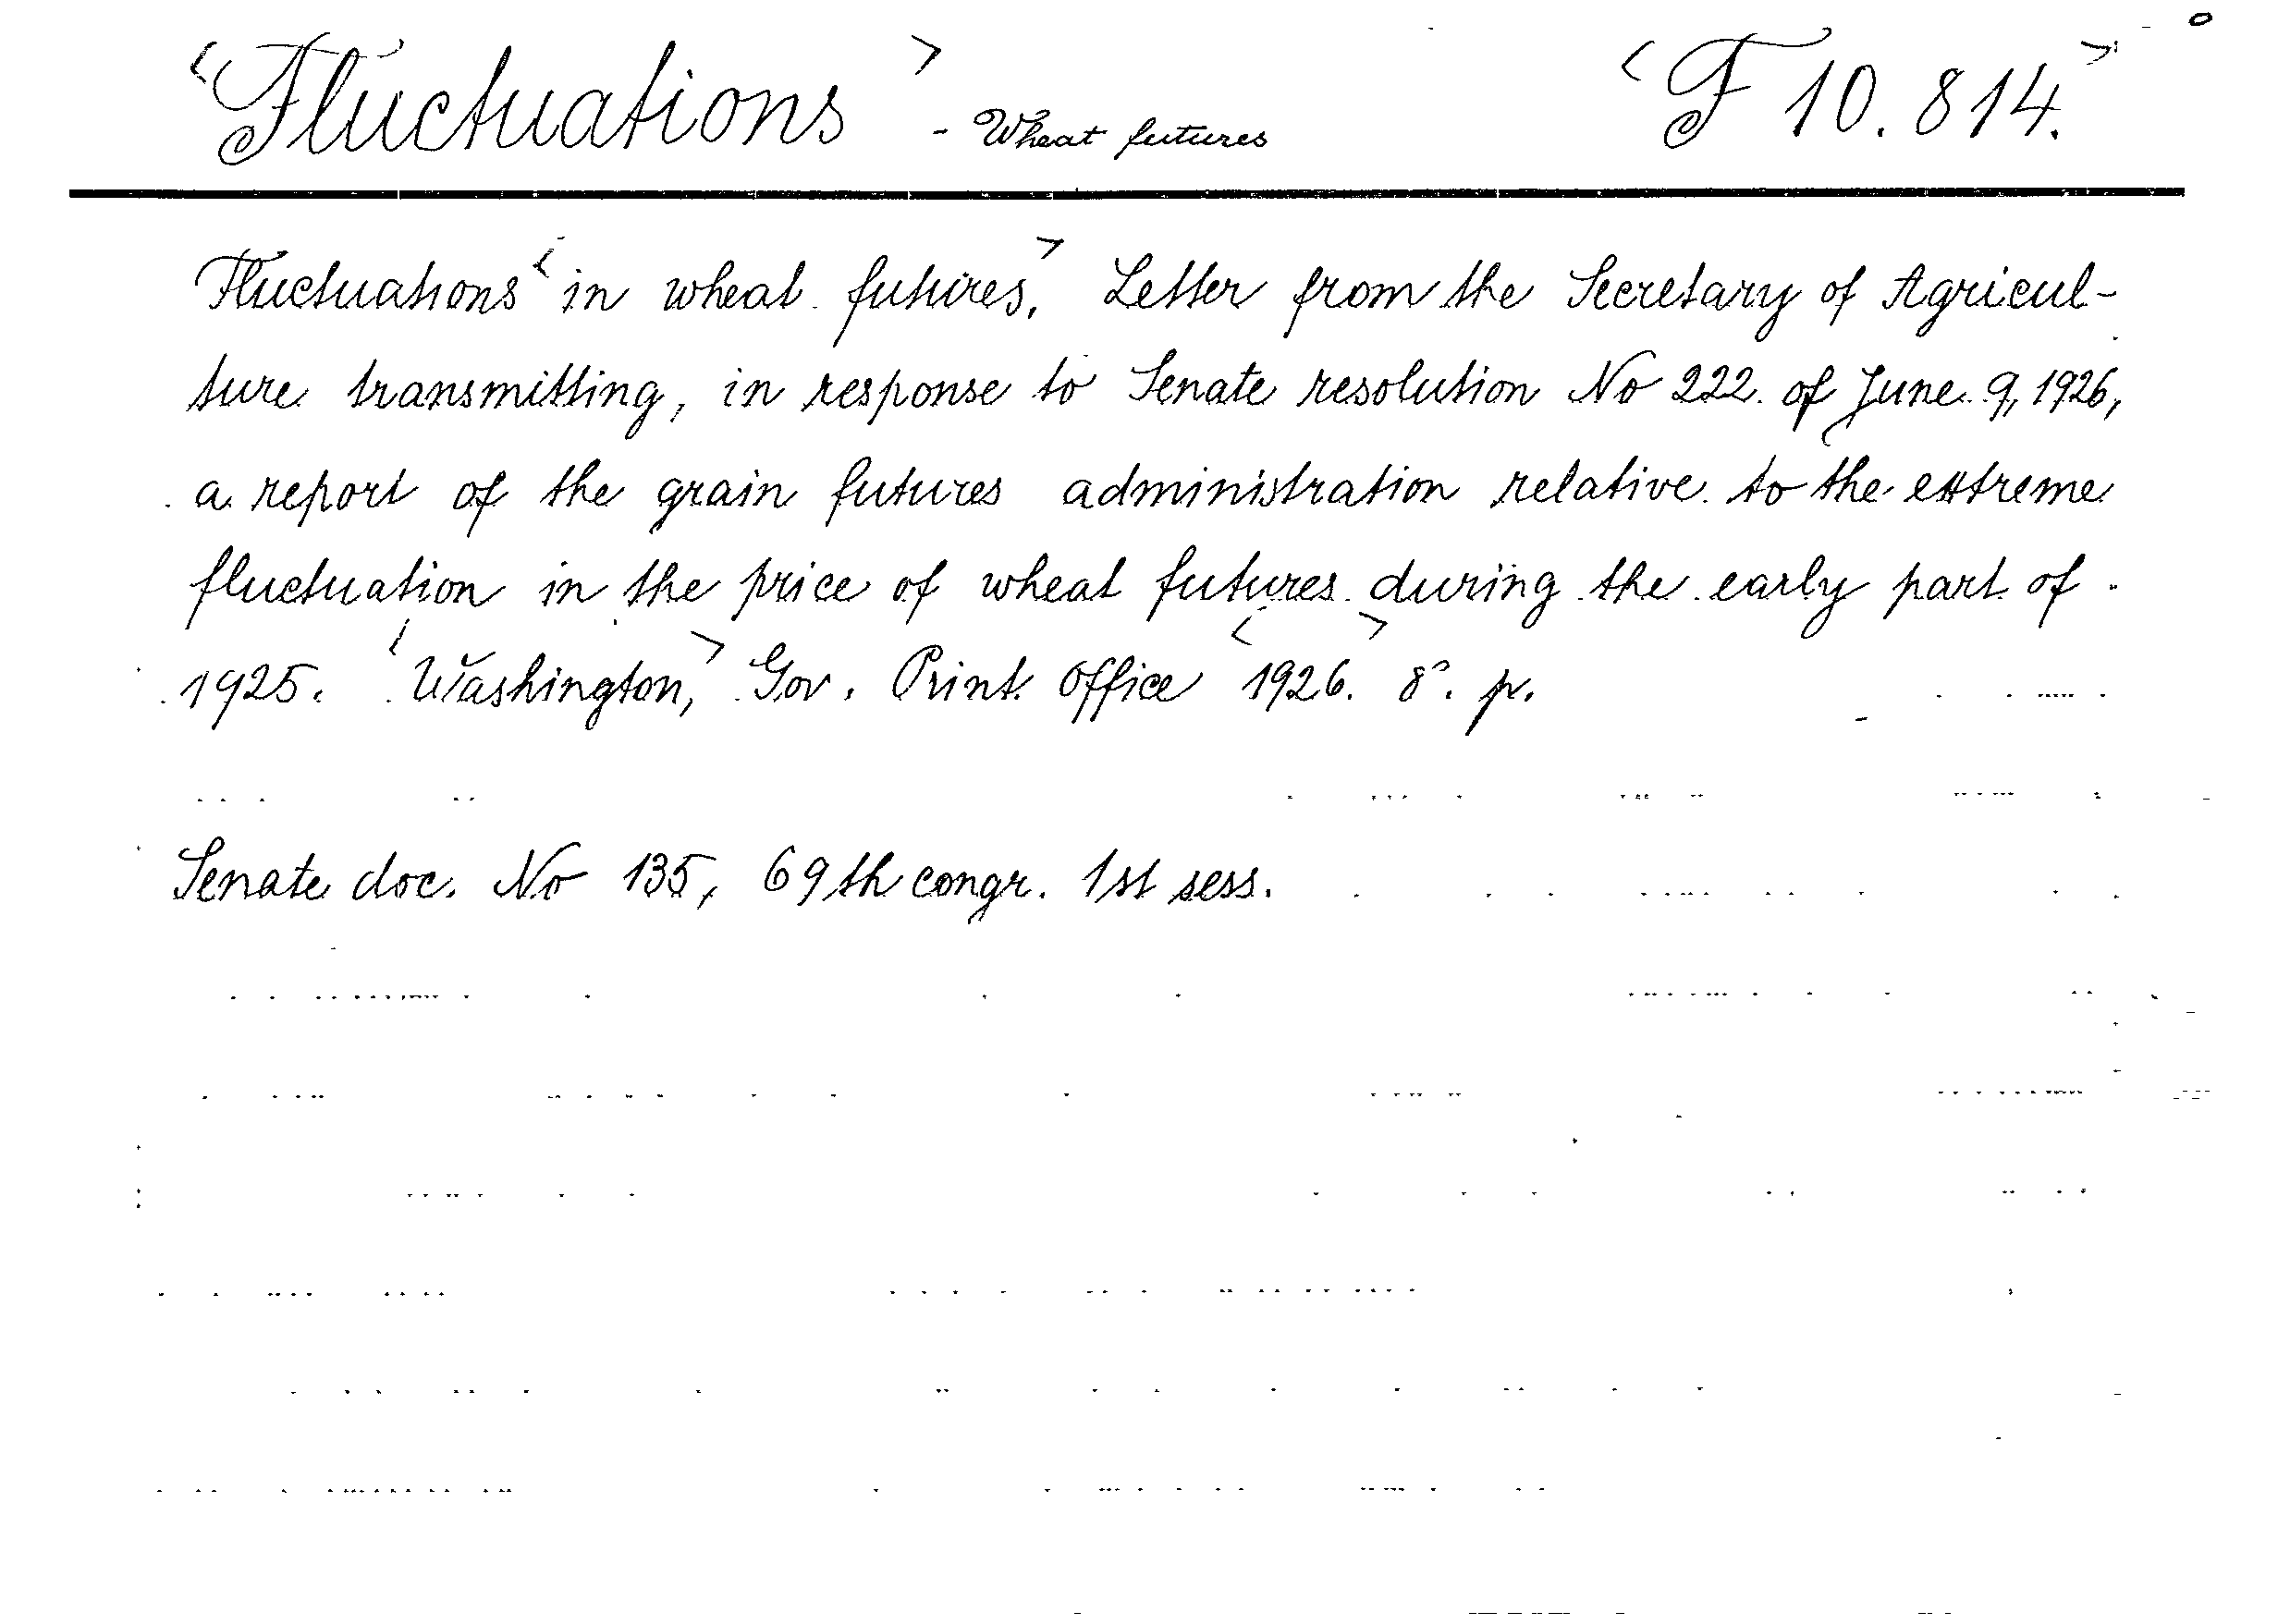 <Fluctuations> - Wheat futures <F 10.814.>
Fluctuations <in wheat futures,> Letter from the Secretary of Agricul-
ture transmitting, in response to Senate resolution No 222 of June 9, 1926,
a report of the grain futures administration relative to the extreme
fluctuation in the price of wheat futures during the early part of
1925. <Washington,> Gov. Print. Office <1926.> 8°. p.
Senate doc. No 135, 69th congr. 1st sess.